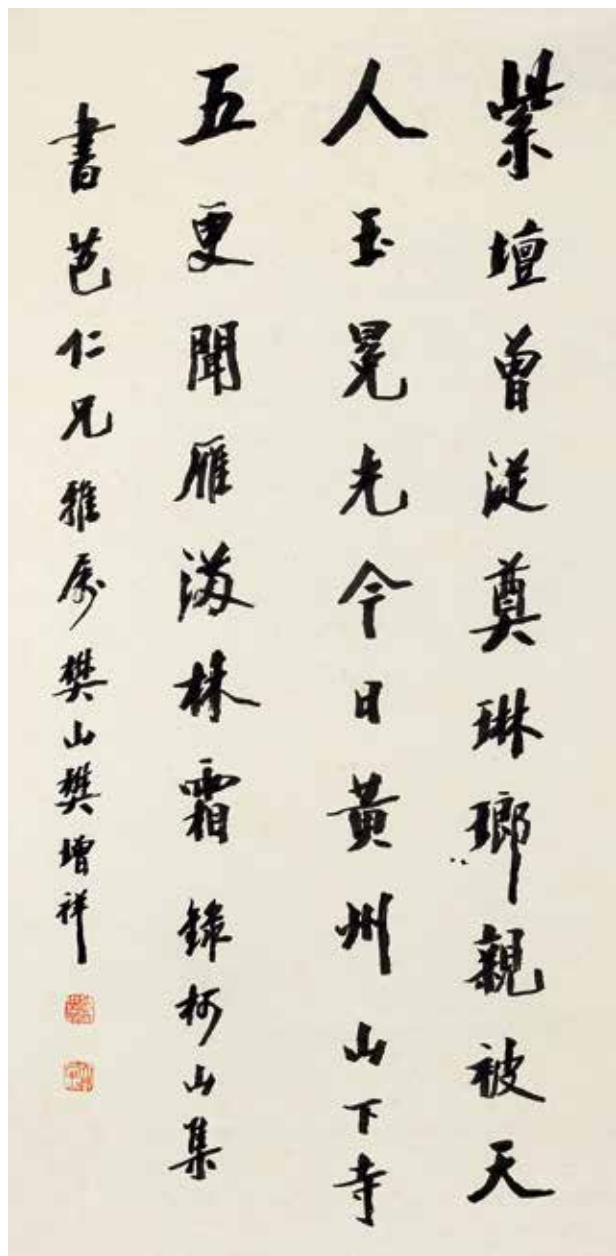 紫壇曾從奠琳瑯親被天
人玉冕光今日黃州山下寺
五更聞雁滿林霜 錄柯山集
書芭仁兄雅属樊山樊增祥